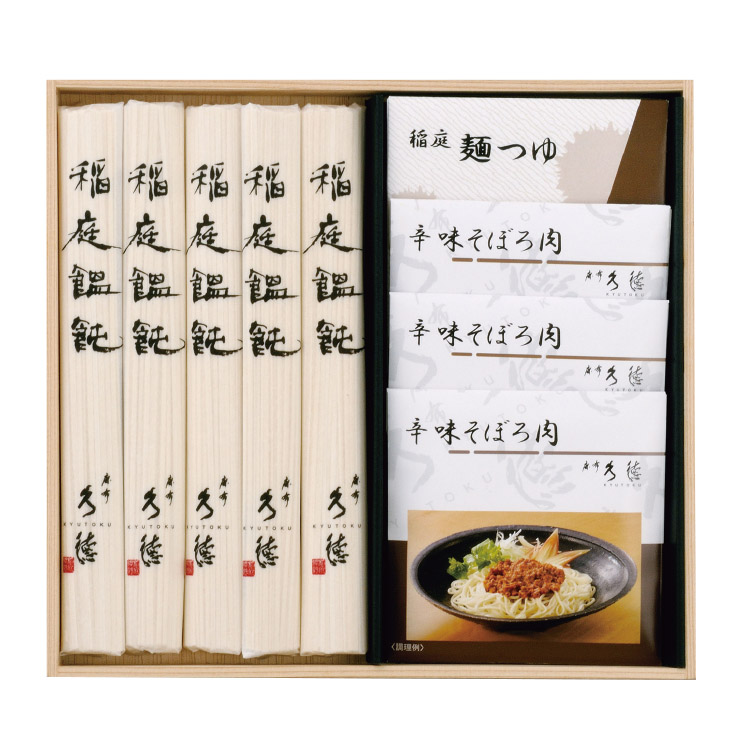 稲庭饂飩
麻布
久徳
KYUTOKU
稲庭饂飩
麻布
久徳
KYUTOKU
稲庭饂飩
麻布
久徳
KYUTOKU
稲庭饂飩
麻布
久徳
KYUTOKU
稲庭饂飩
麻布
久徳
KYUTOKU
稲庭 麺つゆ
辛味そぼろ肉
麻布 久徳
KYUTOKU
辛味そぼろ肉
麻布 久徳
KYUTOKU
辛味そぼろ肉
麻布 久徳
KYUTOKU
〈調理例〉